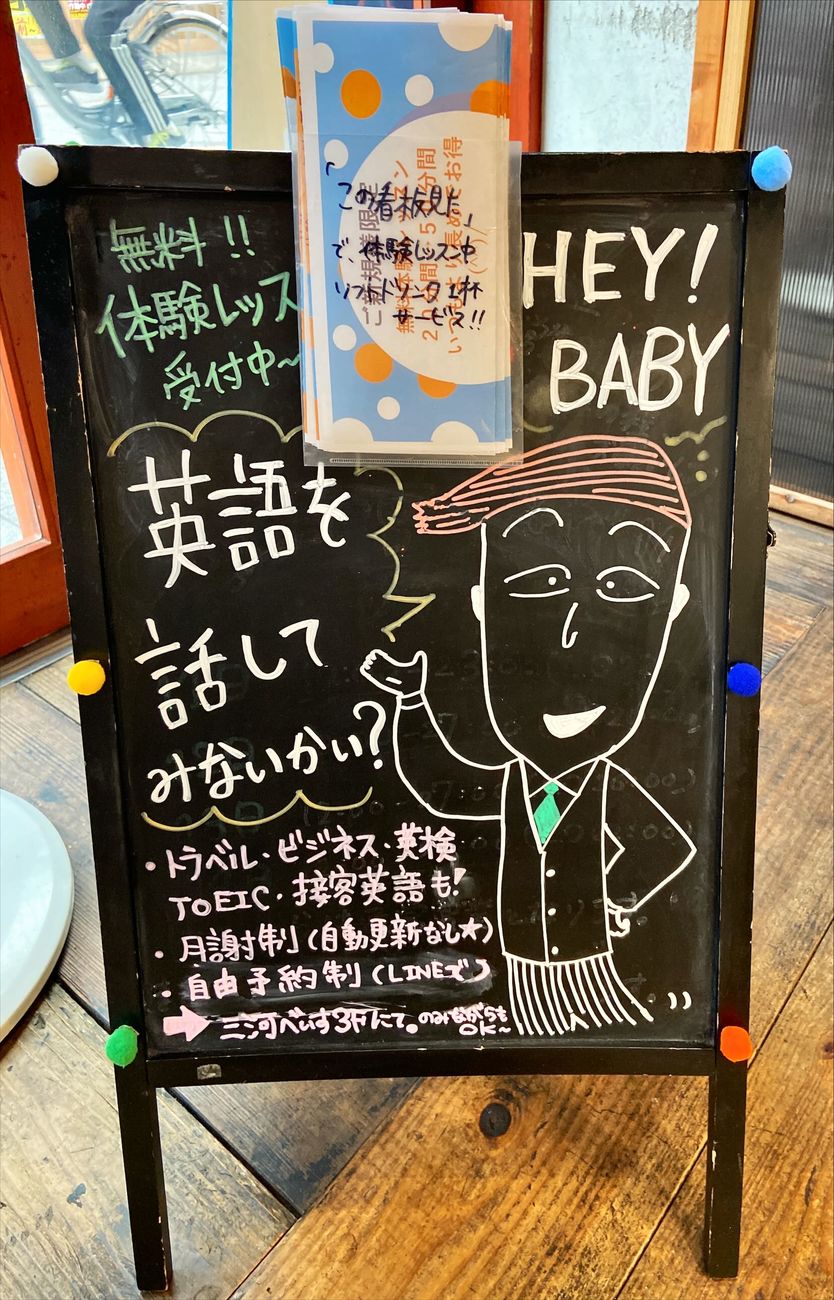 無料!!
体験レッス
受付中~
「この看板見た」
で、体験レッスン中
ソフトドリンク1杯
サービス!!
HEY!
BABY
英語を
話して
みないかい?
・トラベル・ビジネス・英検
TOEIC・接客英語も!
・月謝制(自動更新なし★)
・自由予約制(LINEで)
三河べいす3Fにて。のみながらも
OK~